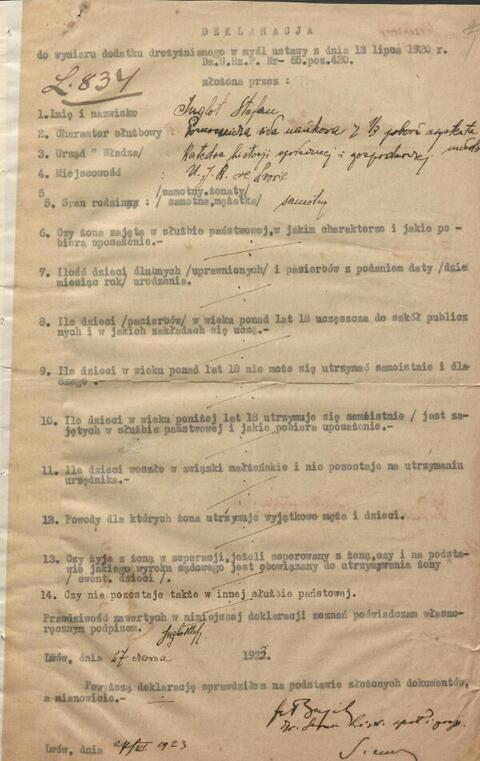 DEKLARACJA
do wymiaru dodatku drożyźnianego w myśl ustawy z dnia 13 lipca 1920 r.
Dz.U.Rz.P. Nr- 65.poz.420.
L. 834
złożona przez :
1. Imię i nazwisko Inglot Stefan
2. Charakter służbowy : Pomocnicza siła naukowa z 1/3 poborów asystenta
3. Urząd " Władza/ Katedra historji społecznej i gospodarczej.
4. Miejscowość : U.J.K. we Lwowie
5 /samotny, żonaty/
5. Stan rodzinny : / samotna, mężatka/ samotny
6. Czy żona zajęta w służbie państwowej, w jakim charakterze i jakie po-
biera uposażenie.-
7. Ilość dzieci ślubnych /uprawnionych/ i pasierbów z podaniem daty /dzień
miesiąc rok/ urodzenia.
8. Ile dzieci /pasierbów/ w wieku ponad lat 18 uczęszcza do szkół publicz
nych i w jakich zakładach się uczą.-
9. Ile dzieci w wieku ponad lat 18 nie może się utrzymać samoistnie i dla-
czego .-
10. Ile dzieci w wieku poniżej lat 18 utrzymuje się samoistnie / jest za-
jętych w służbie państwowej i jakie pobiera uposażenie.-
11. Ile dzieci weszło w związki małżeńskie i nie pozostaje na utrzymaniu
urzędnika.-
12. Powody dla których żona utrzymuje wyjątkowo męża i dzieci.
13. Czy żyje z żoną w seperacji, jeżeli seperowany z żoną, czy i na podsta-
wie jakiego wyroku sądowego jest obowiązany do utrzymywania żony
/ ewent. dzieci /.
14. Czy nie pozostaje także w innej służbie państwowej.
Prawdziwość zawartych w niniejszej deklaracji zeznań poświadczam własno-
ręcznym podpisem.
Lwów, dnia 27 czerwca 1923.
Powyższą deklarację sprawdziłem na podstawie złożonych dokumentów,
a mianowicie.-
Lwów, dnia 27/VI 1923